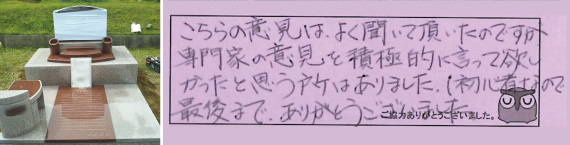 こちらの意見は、よく聞いて頂いたのですが
専門家の意見を積極的に言って欲し
かったと思う所はありました。(初心者なので
最後まで、ありがとうございました
ご協力ありがとうございました。